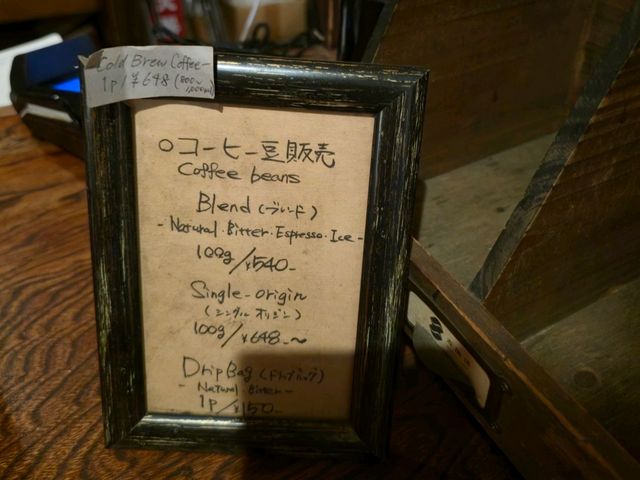 Cold Brew Coffee-
1p/¥648(800~
1,000ml)
○コーヒー豆販売
Coffee beans
Blend(ブレンド)
-Natural・Bitter・Espresso・Ice-
100g/¥540-
Single-origin
(シングルオリジン)
100g/¥648-~
Drip Bag(ドリップバッグ)
-Natural・Bitter-
1p/¥150-